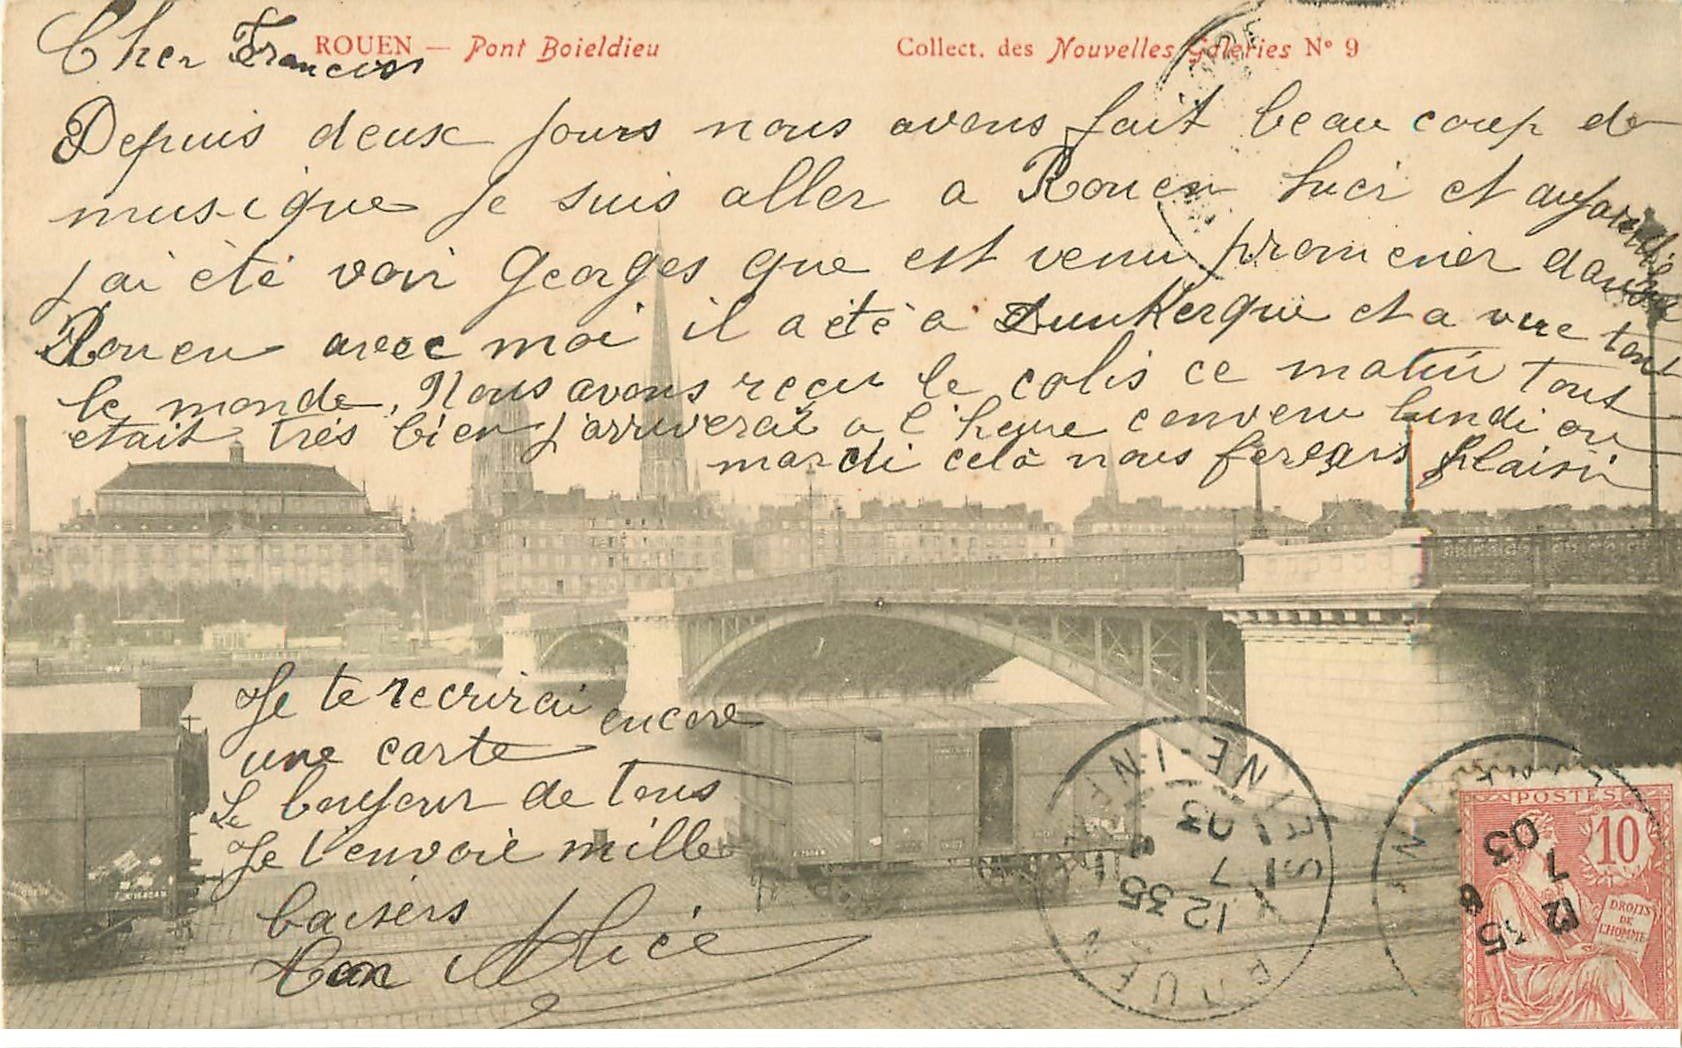 ROUEN — Pont Boieldieu
Collect. des Nouvelles Galeries N° 9
Cher Francois
Depuis deux jours nous avons fait beau coup de
musique je suis aller a Rouen hier et aujourd'hui
j'ai été voir Georges que est venu promener dans
Rouen avec moi il a été a Dunkerque et a vue tout
le monde, Nous avons reçu le colis ce matin tout
etait très bien j'arriverai a l'heure convenu lundi ou
mardi celà nous fera plaisir
Je te recrirai encore
une carte
Le bonjour de tous
Je t'envoie mille
baisers
Ton Alice
ROUEN
SEINE-INF
12 35
7
03
POSTES
10
DROITS
DE
L'HOMME
12 35
7
03